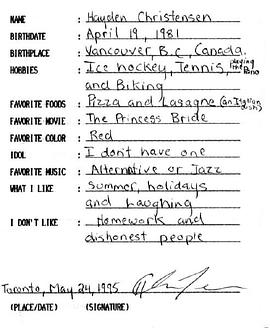 NAME : Hayden Christensen
BIRTHDATE : April 19, 1981
BIRTHPLACE : Vancouver B.C, Canada.
HOBBIES : Ice hockey, Tennis, playing the Piano
and Biking
FAVORITE FOODS : Pizza and Lasagne (an Italian dish)
FAVORITE MOVIE : The Princess Bride
FAVORITE COLOR : Red
IDOL : I don't have one
FAVORITE MUSIC : Alternative or Jazz
WHAT I LIKE : Summer, holidays
and Laughing
I DON'T LIKE : Homework and
dishonest people
Toronto, May 24, 1995
(PLACE/DATE) (SIGNATURE)